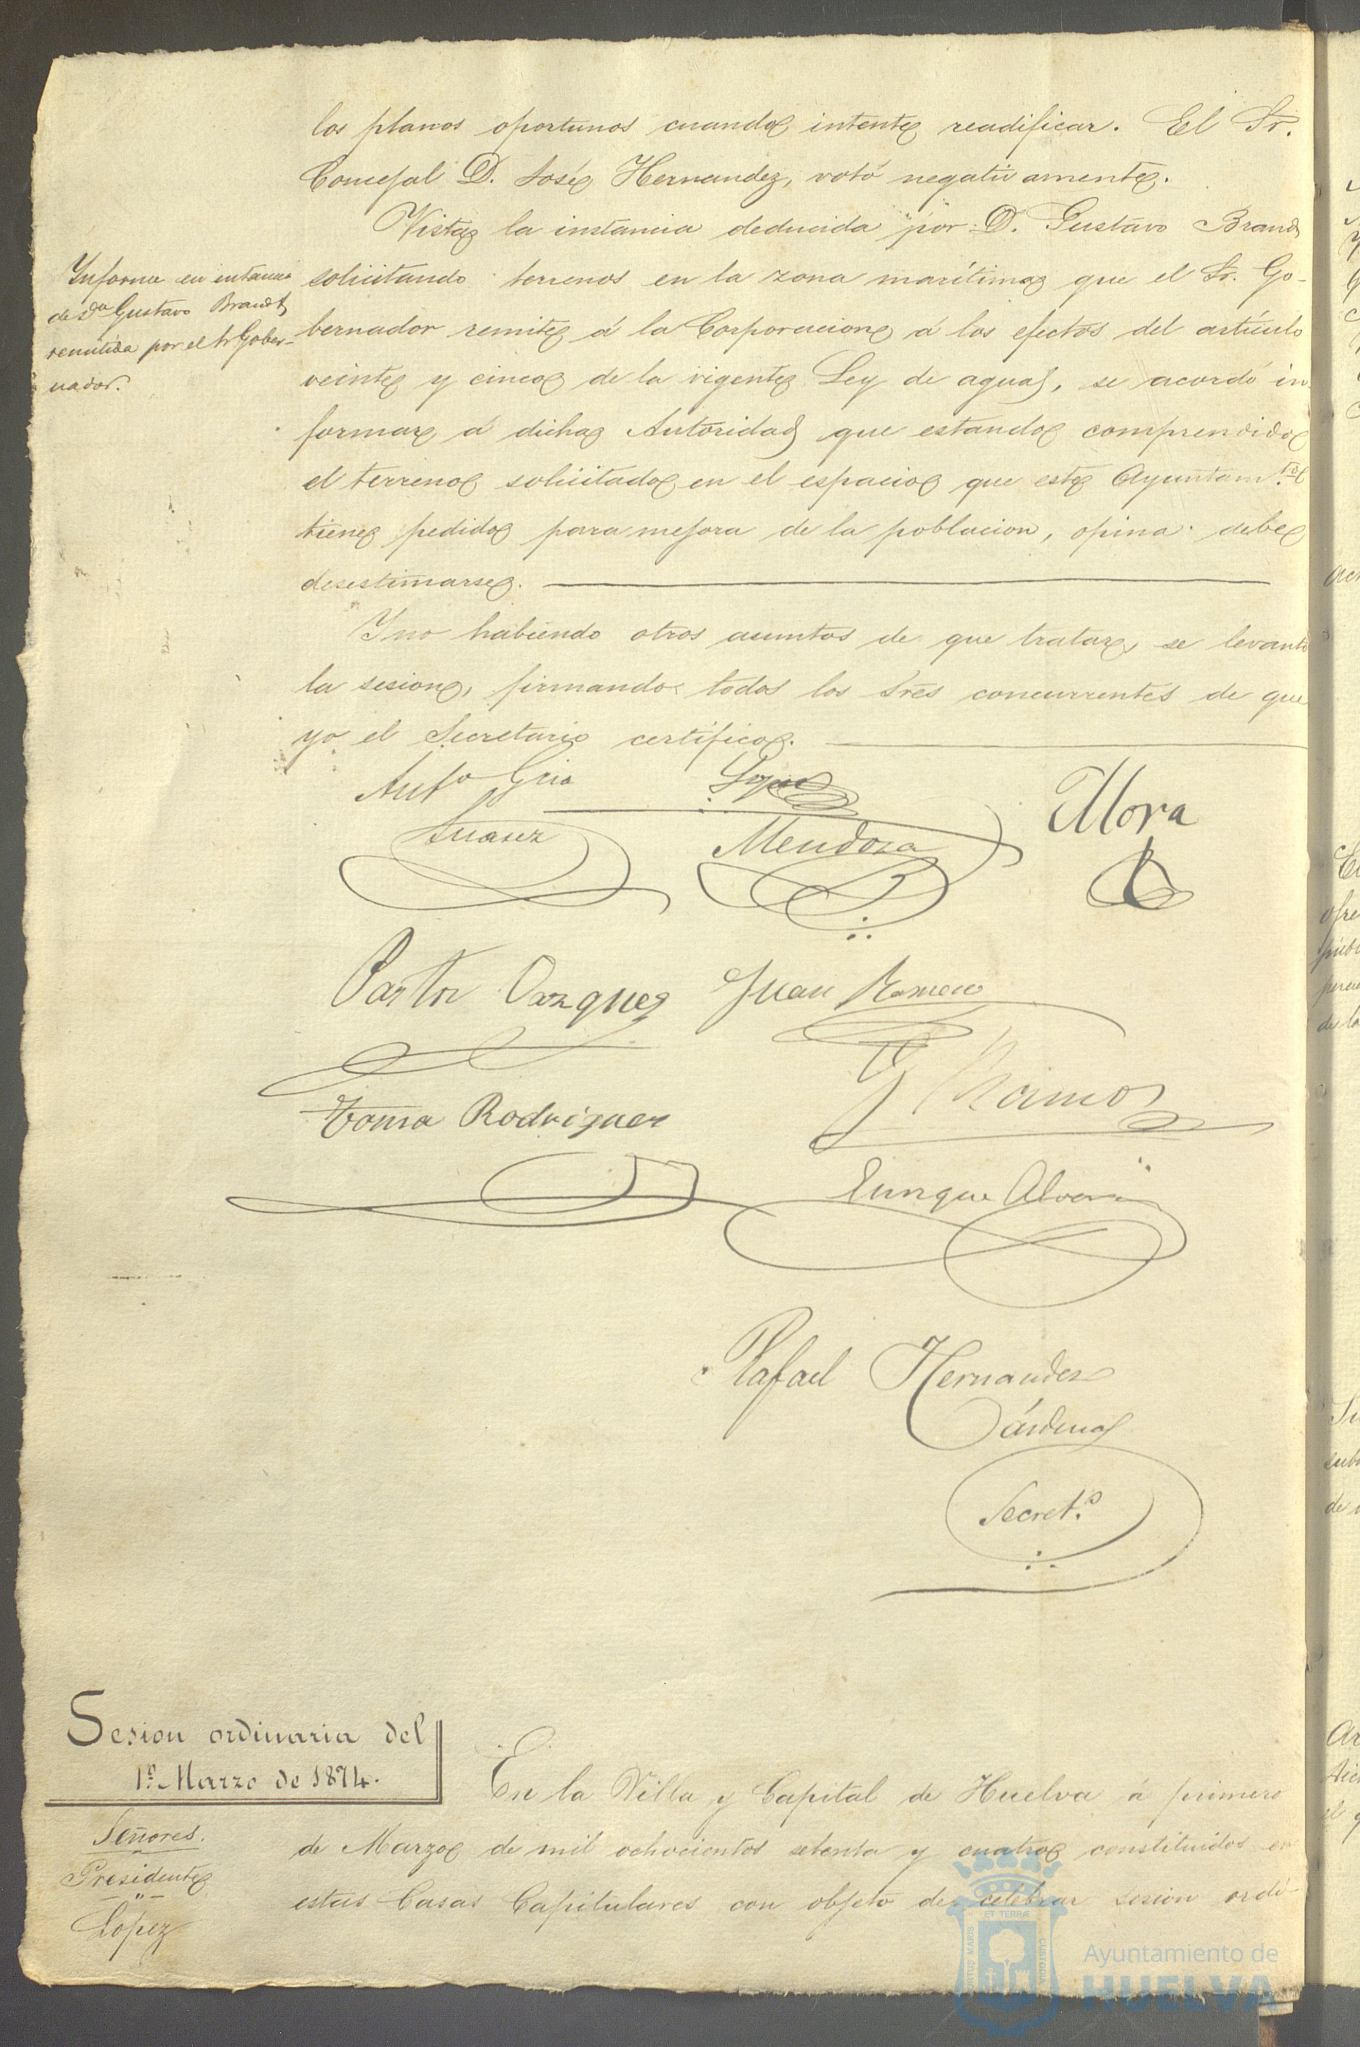 los planos oportunos cuando intente readificar. El Sr.
Concejal D. José Hernandez, votó negativamente.
Vista la instancia deducida por D. Gustavo Brand
solicitando terrenos en la zona marítima que el Sr. Go-
bernador remite á la Corporacion á los efectos del artículo
veinte y cinco de la vigente Ley de aguas, se acordó in
formar á dicha Autoridad que estando comprendido
el terreno solicitado en el espacio que este Ayuntam.to
tiene pedido para mejora de la poblacion, opina debe
desestimarse.
Informe en intancia
de Dn Gustavo Brandt
remitida por el Sr Gober-
nador.
Y no habiendo otros asuntos de que tratar, se levantó
la sesion, firmando todos los Sres concurrentes de que
yo el Secretario certifico.
Anto
Suarez
Lopez
Mendoza
Mora
Pastor Vazquez
Juan Romero
Rodriguez
G Ramos
Enrique
Rafael Hernandez
Cárdenas
Secret.o
Sesion ordinaria del
1º Marzo de 1874.
Señores.
Presidente
López
En la Villa y Capital de Huelva á primero
de Marzo de mil ochocientos setenta y cuatro constituidos en
estas Casas Capitulares con objeto de celebrar sesion ordi-
Ayuntamiento de
HUELVA